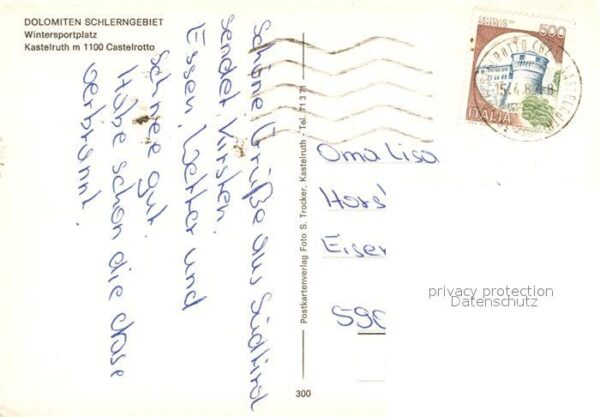 DOLOMITEN SCHLERNGEBIET
Wintersportplatz
Kastelruth m 1100 Castelrotto
Schöne Grüße aus Südtirol
sendet Kirsten.
Essen, Wetter und
Schnee gut.
Habe schon die Nase
verbrannt.
Postkartenverlag Foto S. Trocker, Kastelruth - Tel. 71371
300
500
ITALIA
Oma Lisa
Horst
Eisen
590
privacy protection
Datenschutz